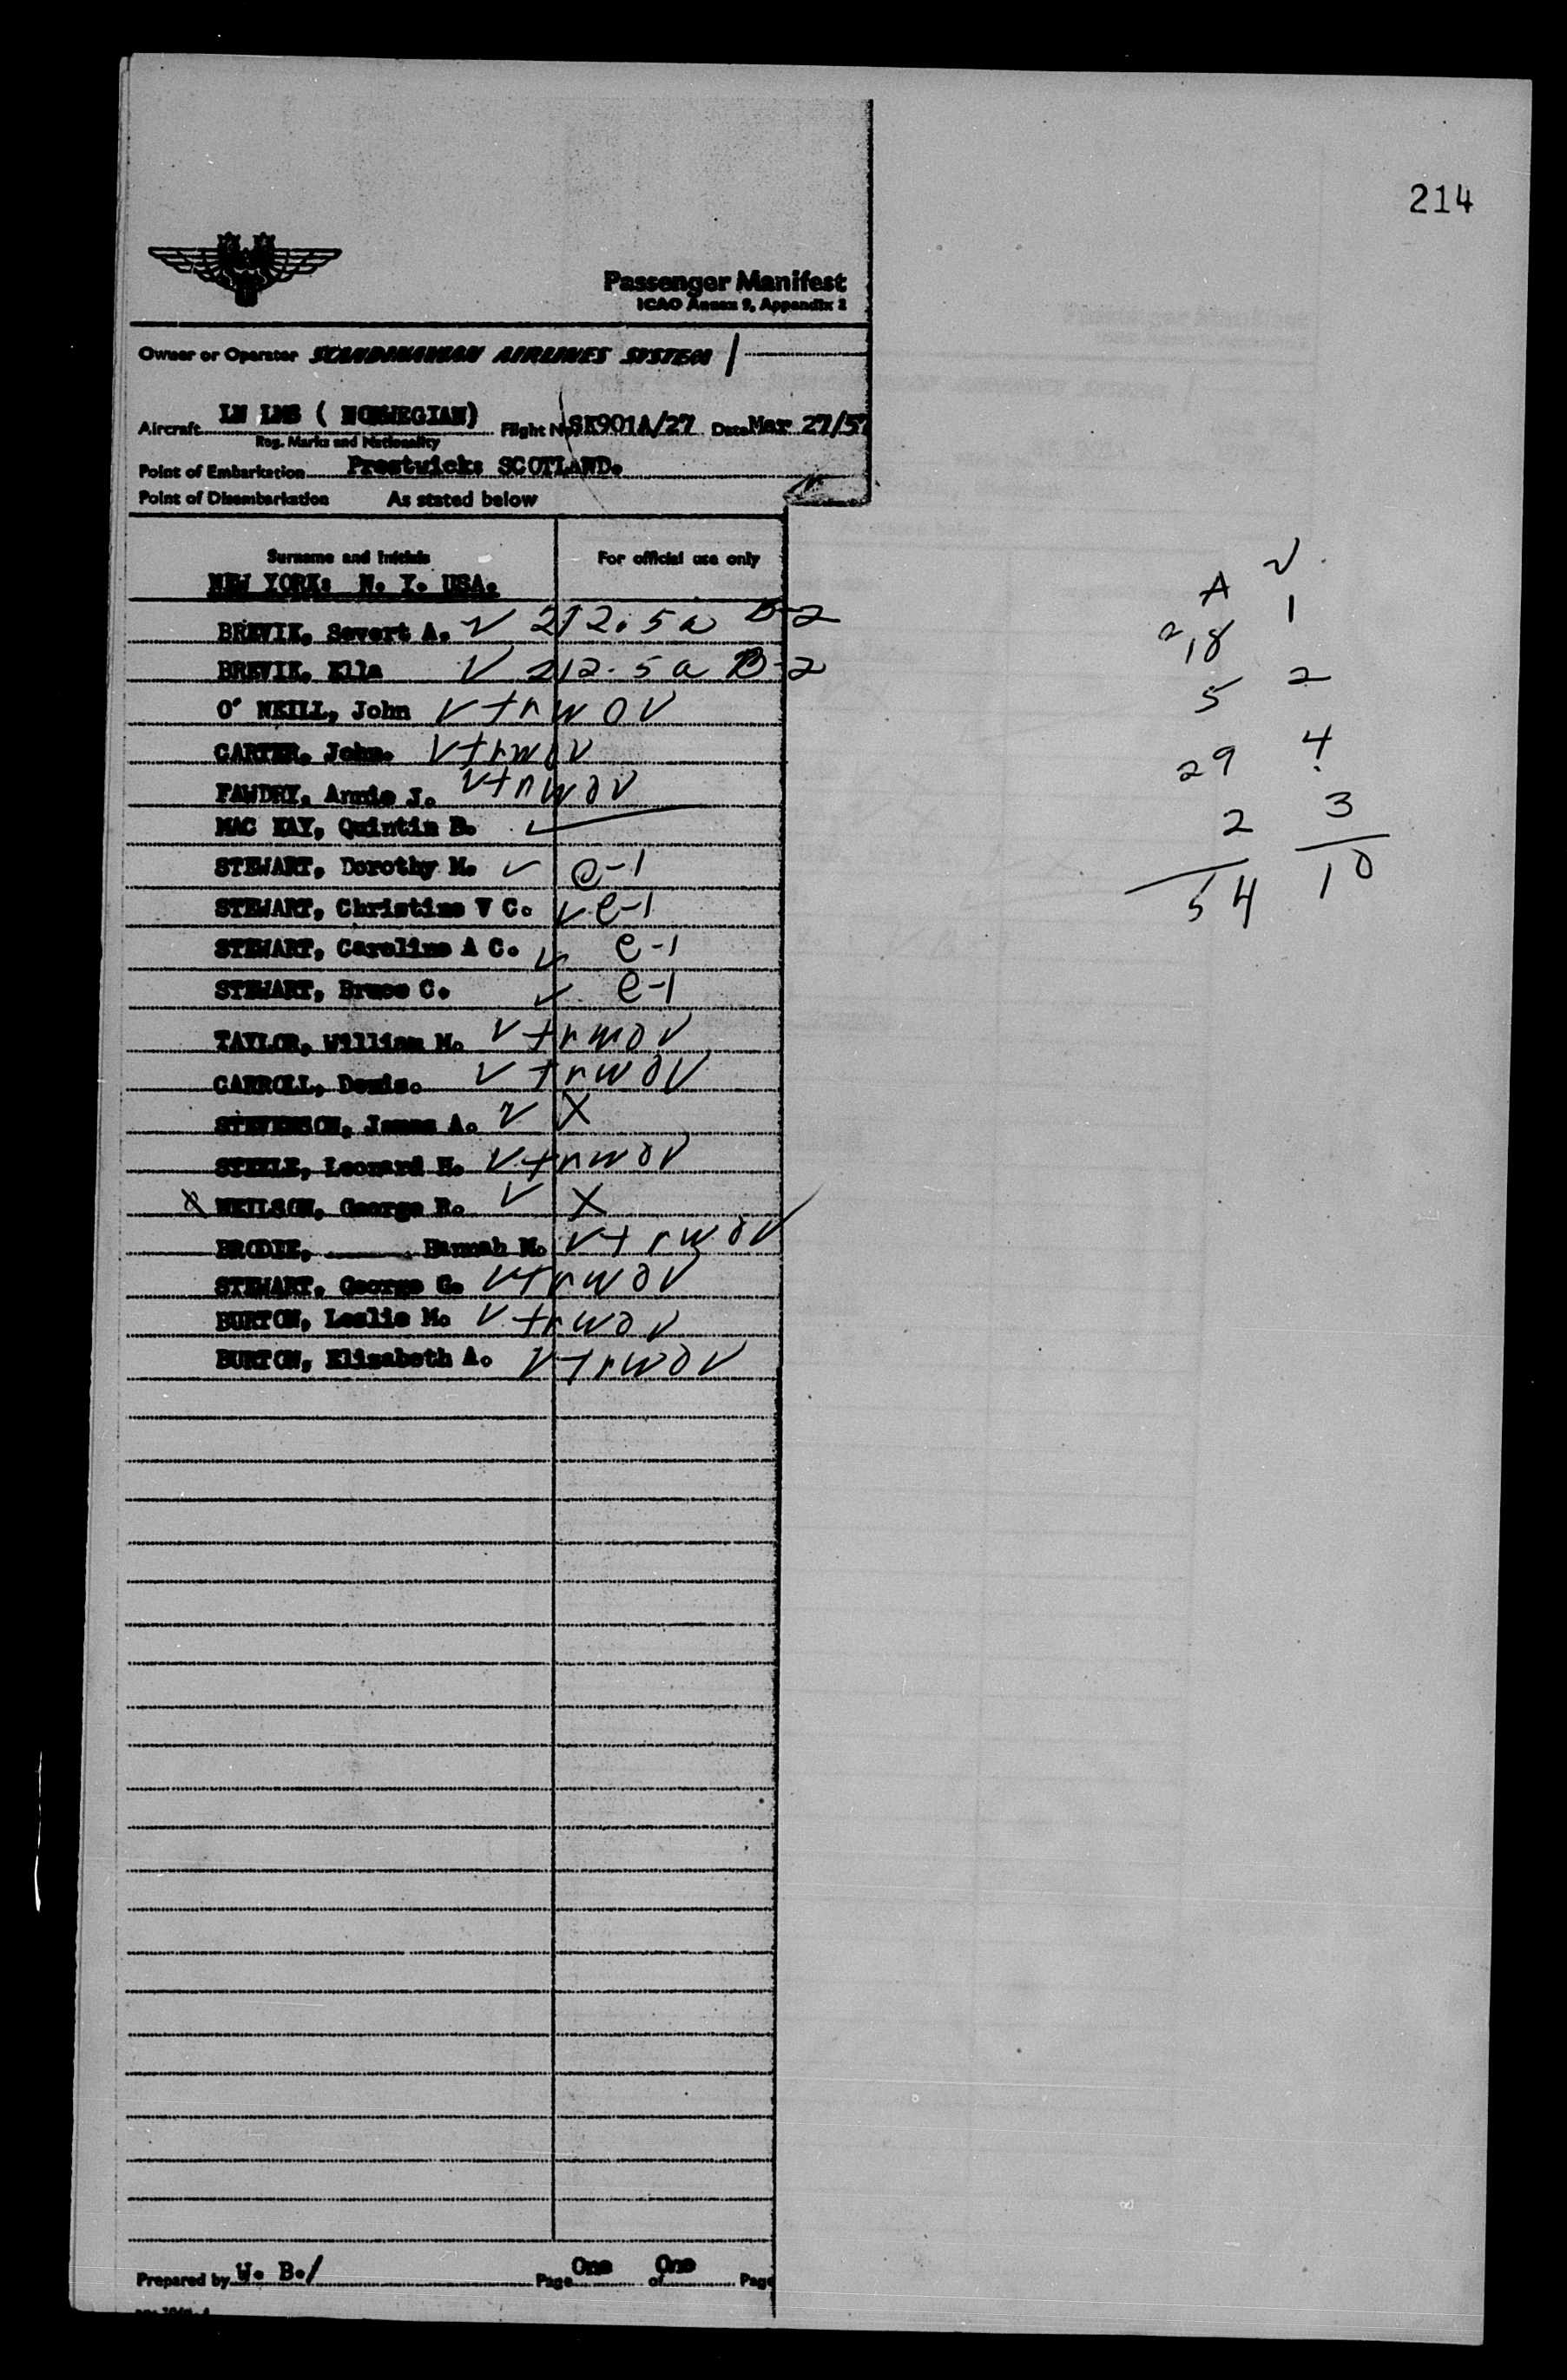 214
Passenger Manifest
ICAO Annex 9, Appendix 2
Owner or Operator SCANDINAVIAN AIRLINES SYSTEM /
Aircraft LN LMS ( NORWEGIAN) Flight No. SK901A/27 Date Mar 27/57
Reg. Marks and Nationality
Point of Embarkation Prestwick: SCOTLAND.
Point of Disembarkation As stated below
Surname and Initials For official use only
NEW YORK: N. Y. USA.
BREVIK, Severt A. V 212.5a B-2
BREVIK, Ella V 212.5a B-2
O' NEILL, John V trwov
CARTER, John. V trwov
FAWDRY, Annie J. V trwov
MAC KAY, Quintin B. ✓
STEWART, Dorothy M. ✓ e-1
STEWART, Christine V C. ✓ e-1
STEWART, Caroline A C. ✓ e-1
STEWART, Bruce C. ✓ e-1
TAYLOR, William M. V trwov
CARROLL, Denis. V trwov
STEVENSON, James A. V X
STEELE, Leonard H. V trwov
NEILSON, George R. V X
BRODIE, Hannah M. V trwov
STEWART, George G. V trwov
BURTON, Leslie M. V trwov
BURTON, Elizabeth A. V trwov
A V
18 1
5 2
29 4
2 3
54 10
Prepared by W. B./ Page One of One Page